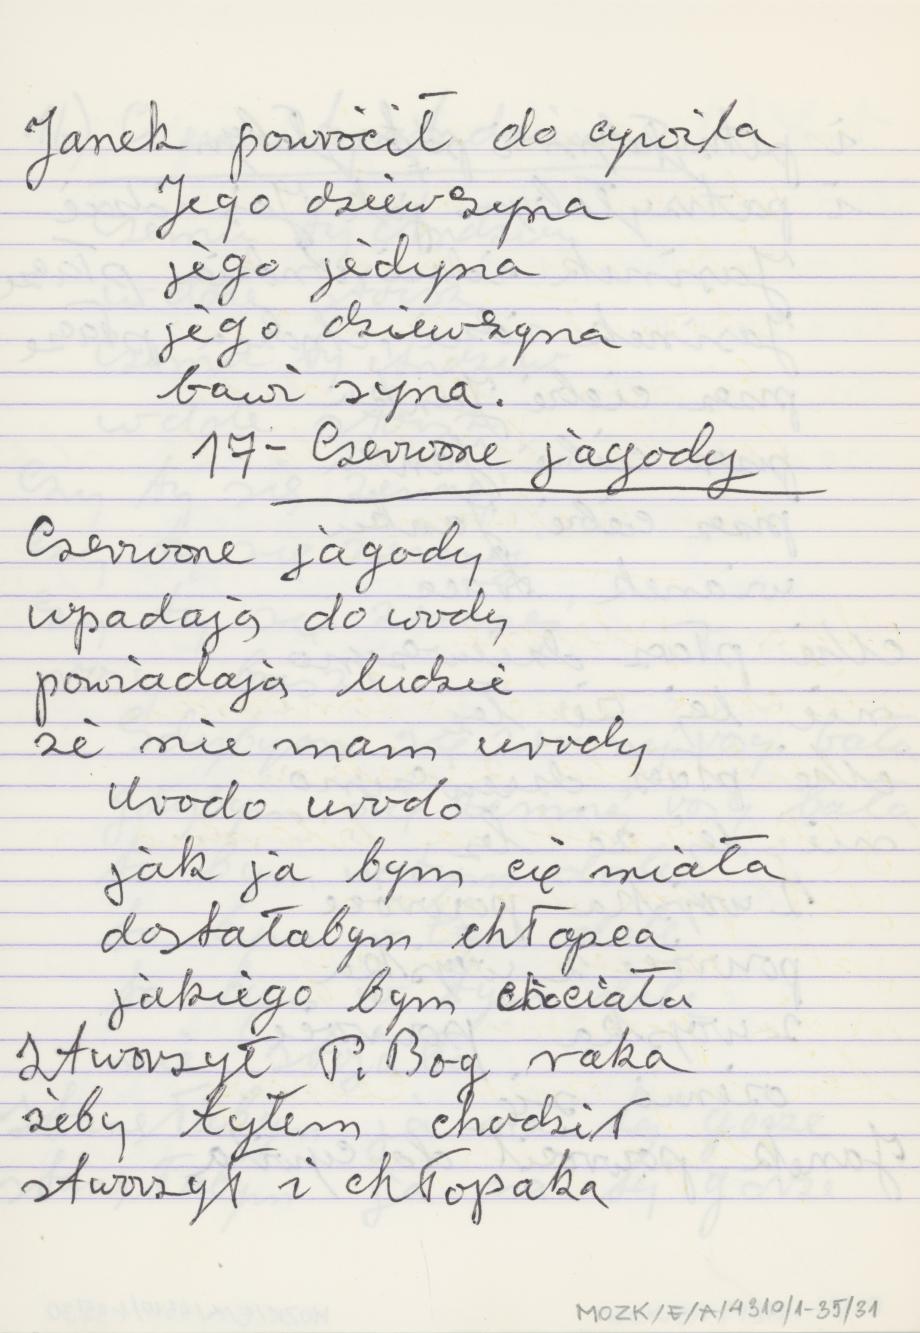 Janek powrócił do cywila
Jego dziewczyna
jego jedyna
jego dziewczyna
bawi syna.
17- Czerwone jagody
Czerwone jagody
wpadają do wody
powiadają ludzie
że nie mam urody
Urodo urodo
jak ja bym cię miała
dostałabym chłopca
jakiego bym chciała
Stworzył P. Bog raka
żeby tyłem chodził
stworzył i chłopaka
MOZK/E/A/4310/1-35/31